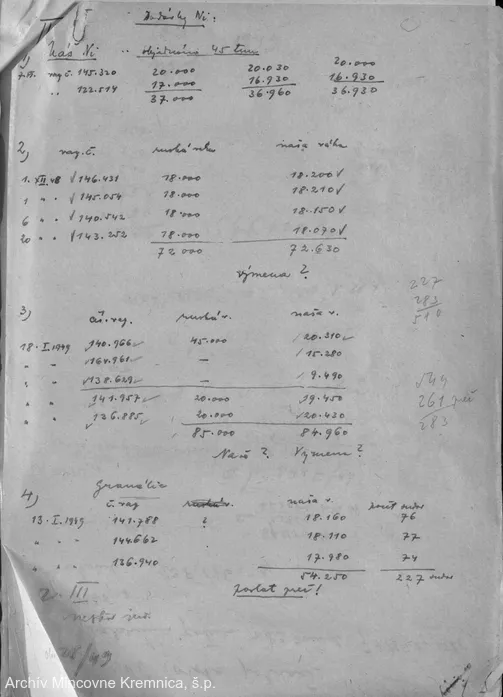 IV
Dodávky Ni:
1) Náš Ni .. objednáno 45 tun
7.XI. vag.č. 145.320 20.000 20.030 20.000
" 122.514 17.000 16.930 16.930
37.000 36.960 36.930
2) vag.č. ruská váha naša váha
1. XII.48 √146.431 18.000 18.200√
1 " " √145.054 18.000 18.210√
6 " " √140.542 18.000 18.150√
20 " " √143.252 18.000 18.070√
72.000 72.630
výmena ?
227
283
510
3) čís.vag. ruská v. naša v.
18.I.1949 140.966 45.000 20.310
" " 164.961 — 15.280
" " 138.629 — 9.490
" " 141.957 20.000 19.450
" " 126.885 20.000 20.430
85.000 84.960
549
261
283
Naš ? Výmena ?
4) Granálie
č.vag ruská v. naša v. počet sudov
13.I.1949 141.788 ? 18.160 76
" " 144.662 18.110 77
" " 126.940 17.980 74
54.250 227 sudov
poslat preč!
2. III
28/49
Archív Mincovne Kremnica, š.p.